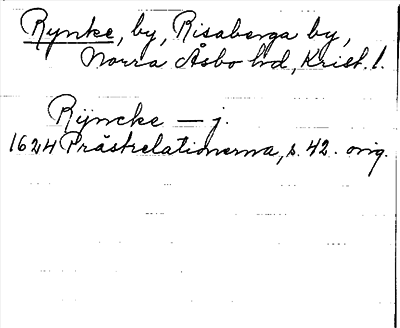 Rynke, by, Risaberga by,
Norra Åsbo hd, Krist. l.
Rÿncke — j.
1624 Prästrelationerna, s. 42. orig.